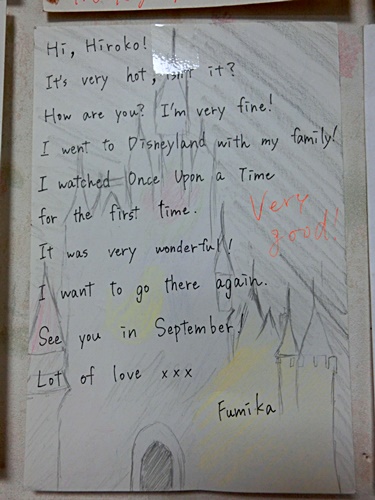 Hi, Hiroko!
It's very hot, isn't it?
How are you? I'm very fine!
I went to Disneyland with my family!
I watched Once Upon a Time
for the first time.
Very
good!
It was very wonderful!
I want to go there again.
See you in September!
Lot of love xxx
Fumika